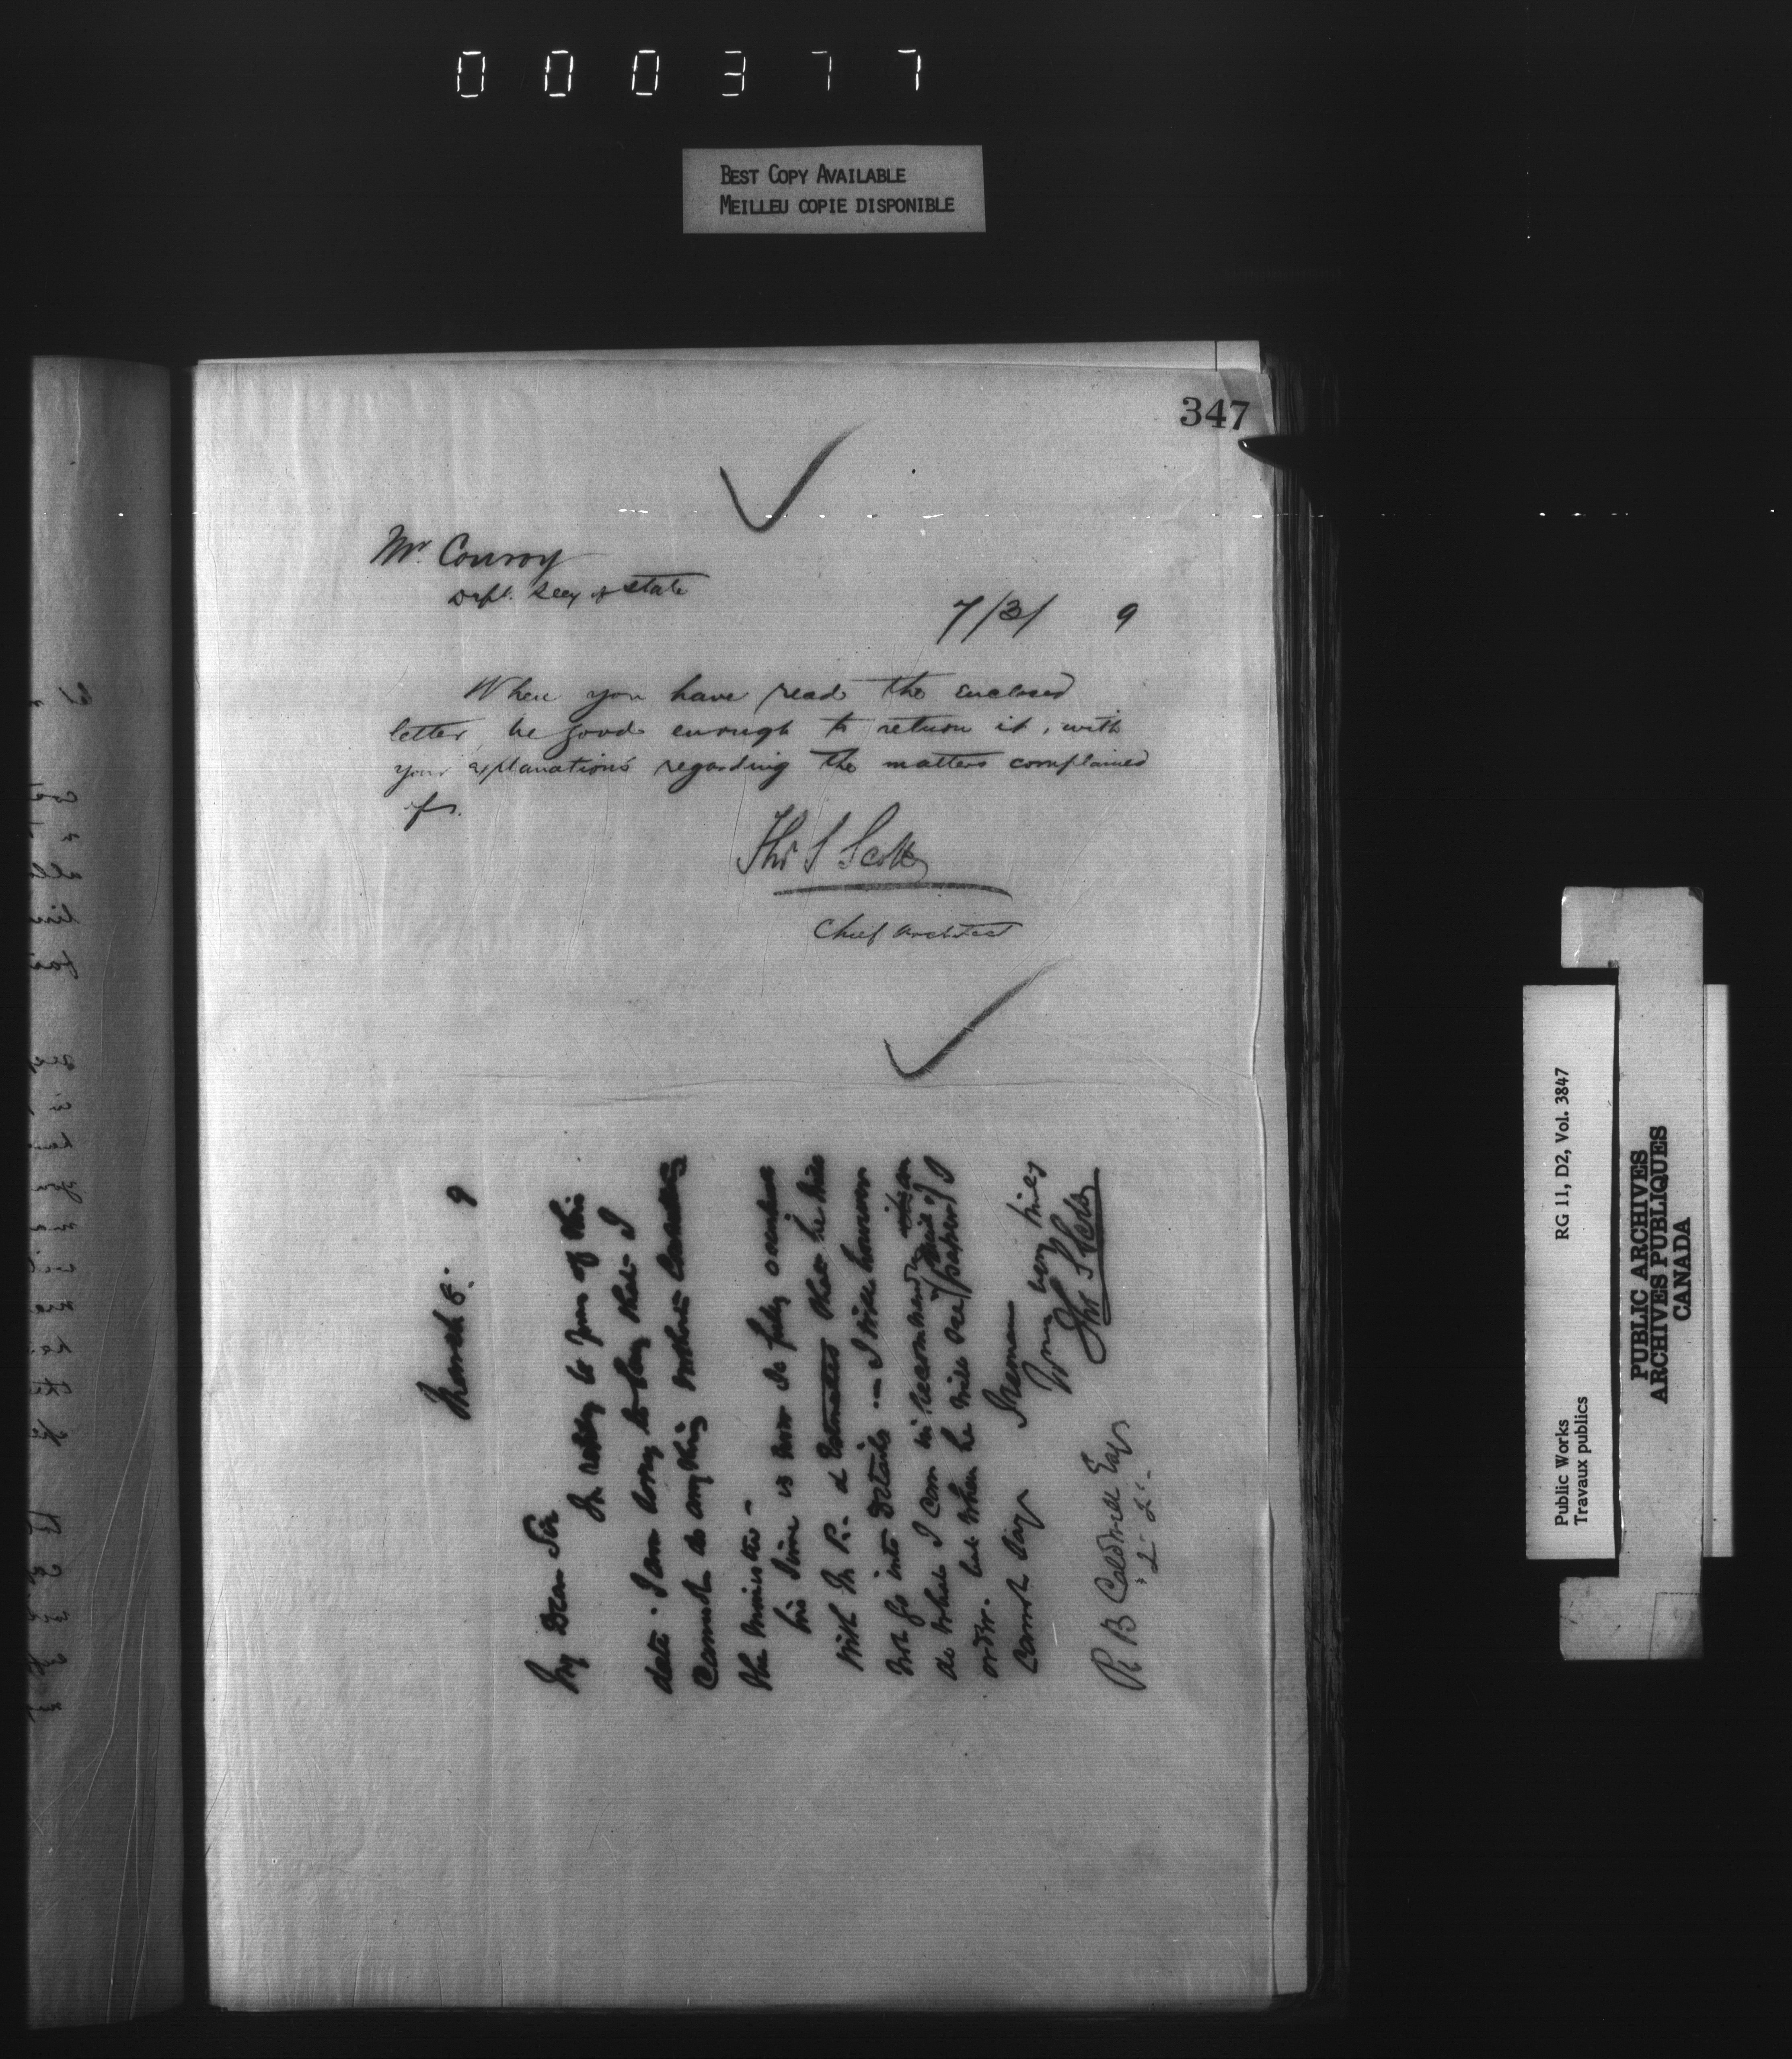 0 0 0 3 7 7
BEST COPY AVAILABLE
MEILLEU COPIE DISPONIBLE
347
Mr. Conroy
Dept. Secy of State
7/3/ 9
When you have read the enclosed
letter, be good enough to return it, with
your explanations regarding the matters complained
of.
Thos S Scott
Chief Architect
March 8. 9
My Dear Sir
In reply to yours of this
date. I am sorry to say that I
cannot do any thing without consulting
the Minister -
his time is now so fully occupied
with M. P.s & Estimates that he will
not go into details — I will however
do what I can in recommending
order. but when he will see papers I
cannot say
I remain
Yours very truly
Thos S Scott
R B Caldwell Esqr
Public Works RG 11, D2, Vol. 3847
Travaux publics
PUBLIC ARCHIVES
ARCHIVES PUBLIQUES
CANADA